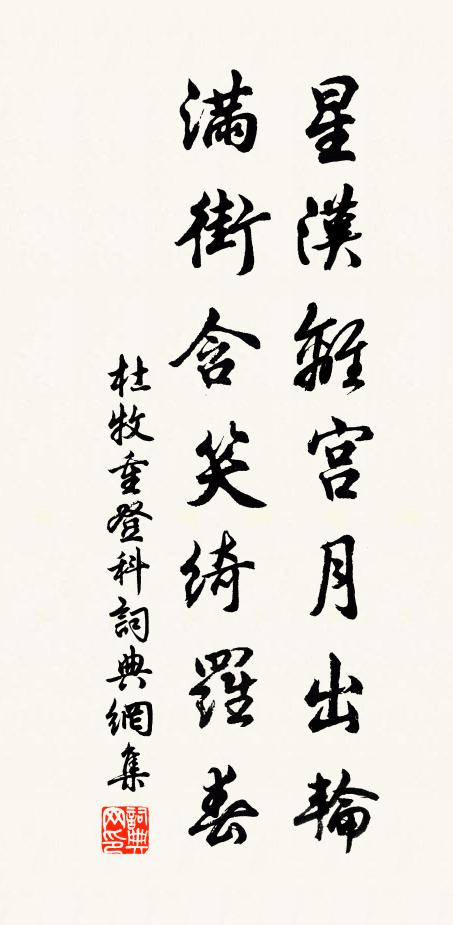 星漢離宮月出輪
滿街含笑綺羅春
杜牧重登科詞典網集
詞典網印